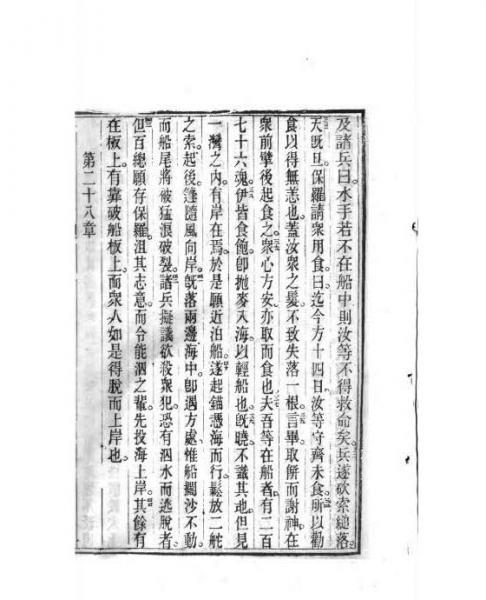 及諸兵曰水手若不在船中則汝等不得救命矣兵遂砍索縋落
天既旦保羅請衆用食曰迄今方十四日汝等守齊未食所以勸
食以得無恙也蓋汝衆之髮不致失落一根言畢取餅而謝神在
衆前擘後起食之衆心方安亦取而食也夫吾等在船者有二百
七十六魂伊皆食飽卽抛麥入海以輕船也旣曉不識其地但見
一灣之內有岸在焉於是願近泊船遂起錨憑海而行鬆放二舵
之索起後篷隨風向岸旣落兩邊海中卽遇方處惟船擱沙不動
而船尾將被猛浪破裂諸兵擬議欲殺衆犯恐有泅水而逃脫者
但百總願仔保羅沮其志意而令能泅之輩先投海上岸其餘有
在板上有靠破船板上而衆人如是得脫而上岸也
第二十八章